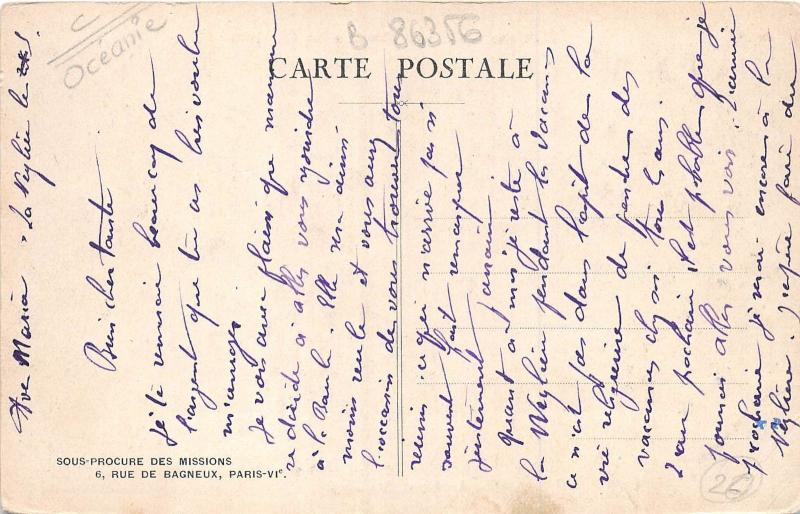 Océanie
B 86356
CARTE POSTALE
Ave Maria La Neylière le
Bien chère tante
je te remercie beaucoup de
l'argent que tu as bien voulu
m'envoyer
je vois avec plaisir que maman
se décide à aller vous rejoindre
à la Baule. Elle sera ainsi
moins seule et vous aurez
l'occasion de vous trouver tous
réunis, ce qui n'arrive pas si
souvent
justement
quant à moi je reste à
la Neylière pendant les vacances
ce n'est pas dans l'esprit de la
vie religieuse de prendre des
vacances chez soi tous les ans.
l'an prochain il est probable que je
pourrai aller vous voir. L'année
prochaine je serai encore à la
Neylière. j'espère faire du
SOUS-PROCURE DES MISSIONS
6, RUE DE BAGNEUX, PARIS-VIe.
26